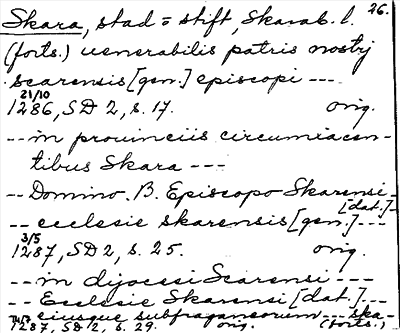 Skara, stad o stift, Skarab. l. 26.
(forts.) venerabilis patris nostrj
scarensis [gen.] episcopi ---
21/10
1286, SD 2, s. 17. orig.
-- in prouinciis circumiacen-
tibus Skara ---
-- Domino. B. Episcopo Skarensi
[dat.] --
-- ecclesie skarensis [gen.] ---
3/5
1287, SD 2, s. 25. orig.
-- in dijocesi Scarensi ---
-- Ecclesie Skarensi [dat.] ---
-- eiusque subfraganeorum --- ska-
1287, SD 2, s. 29. orig. (forts.)